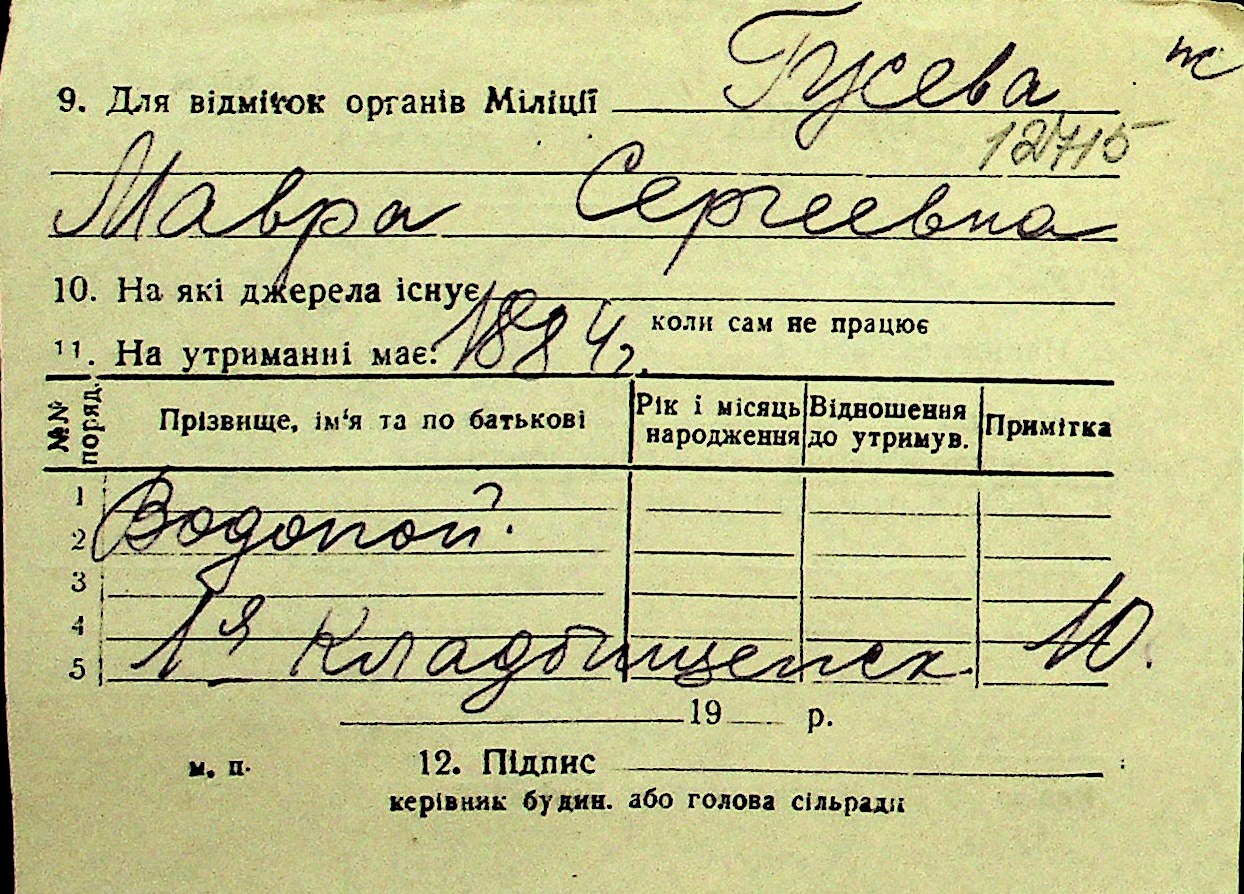 Гусева ж
9. Для відміток органів Міліції
12715
Мавра Сергеевна
10. На які джерела існує
коли сам не працює
11. На утриманні має: 1884 г.
№№ поряд. Прізвище, ім‘я та по батькові Рік і місяць народження Відношення до утримув. Примітка
1
Водопой.
2
3
4
1я Кладбищенск. 10.
5
19 р.
м. п. 12. Підпис
керівник будин. або голова сільради